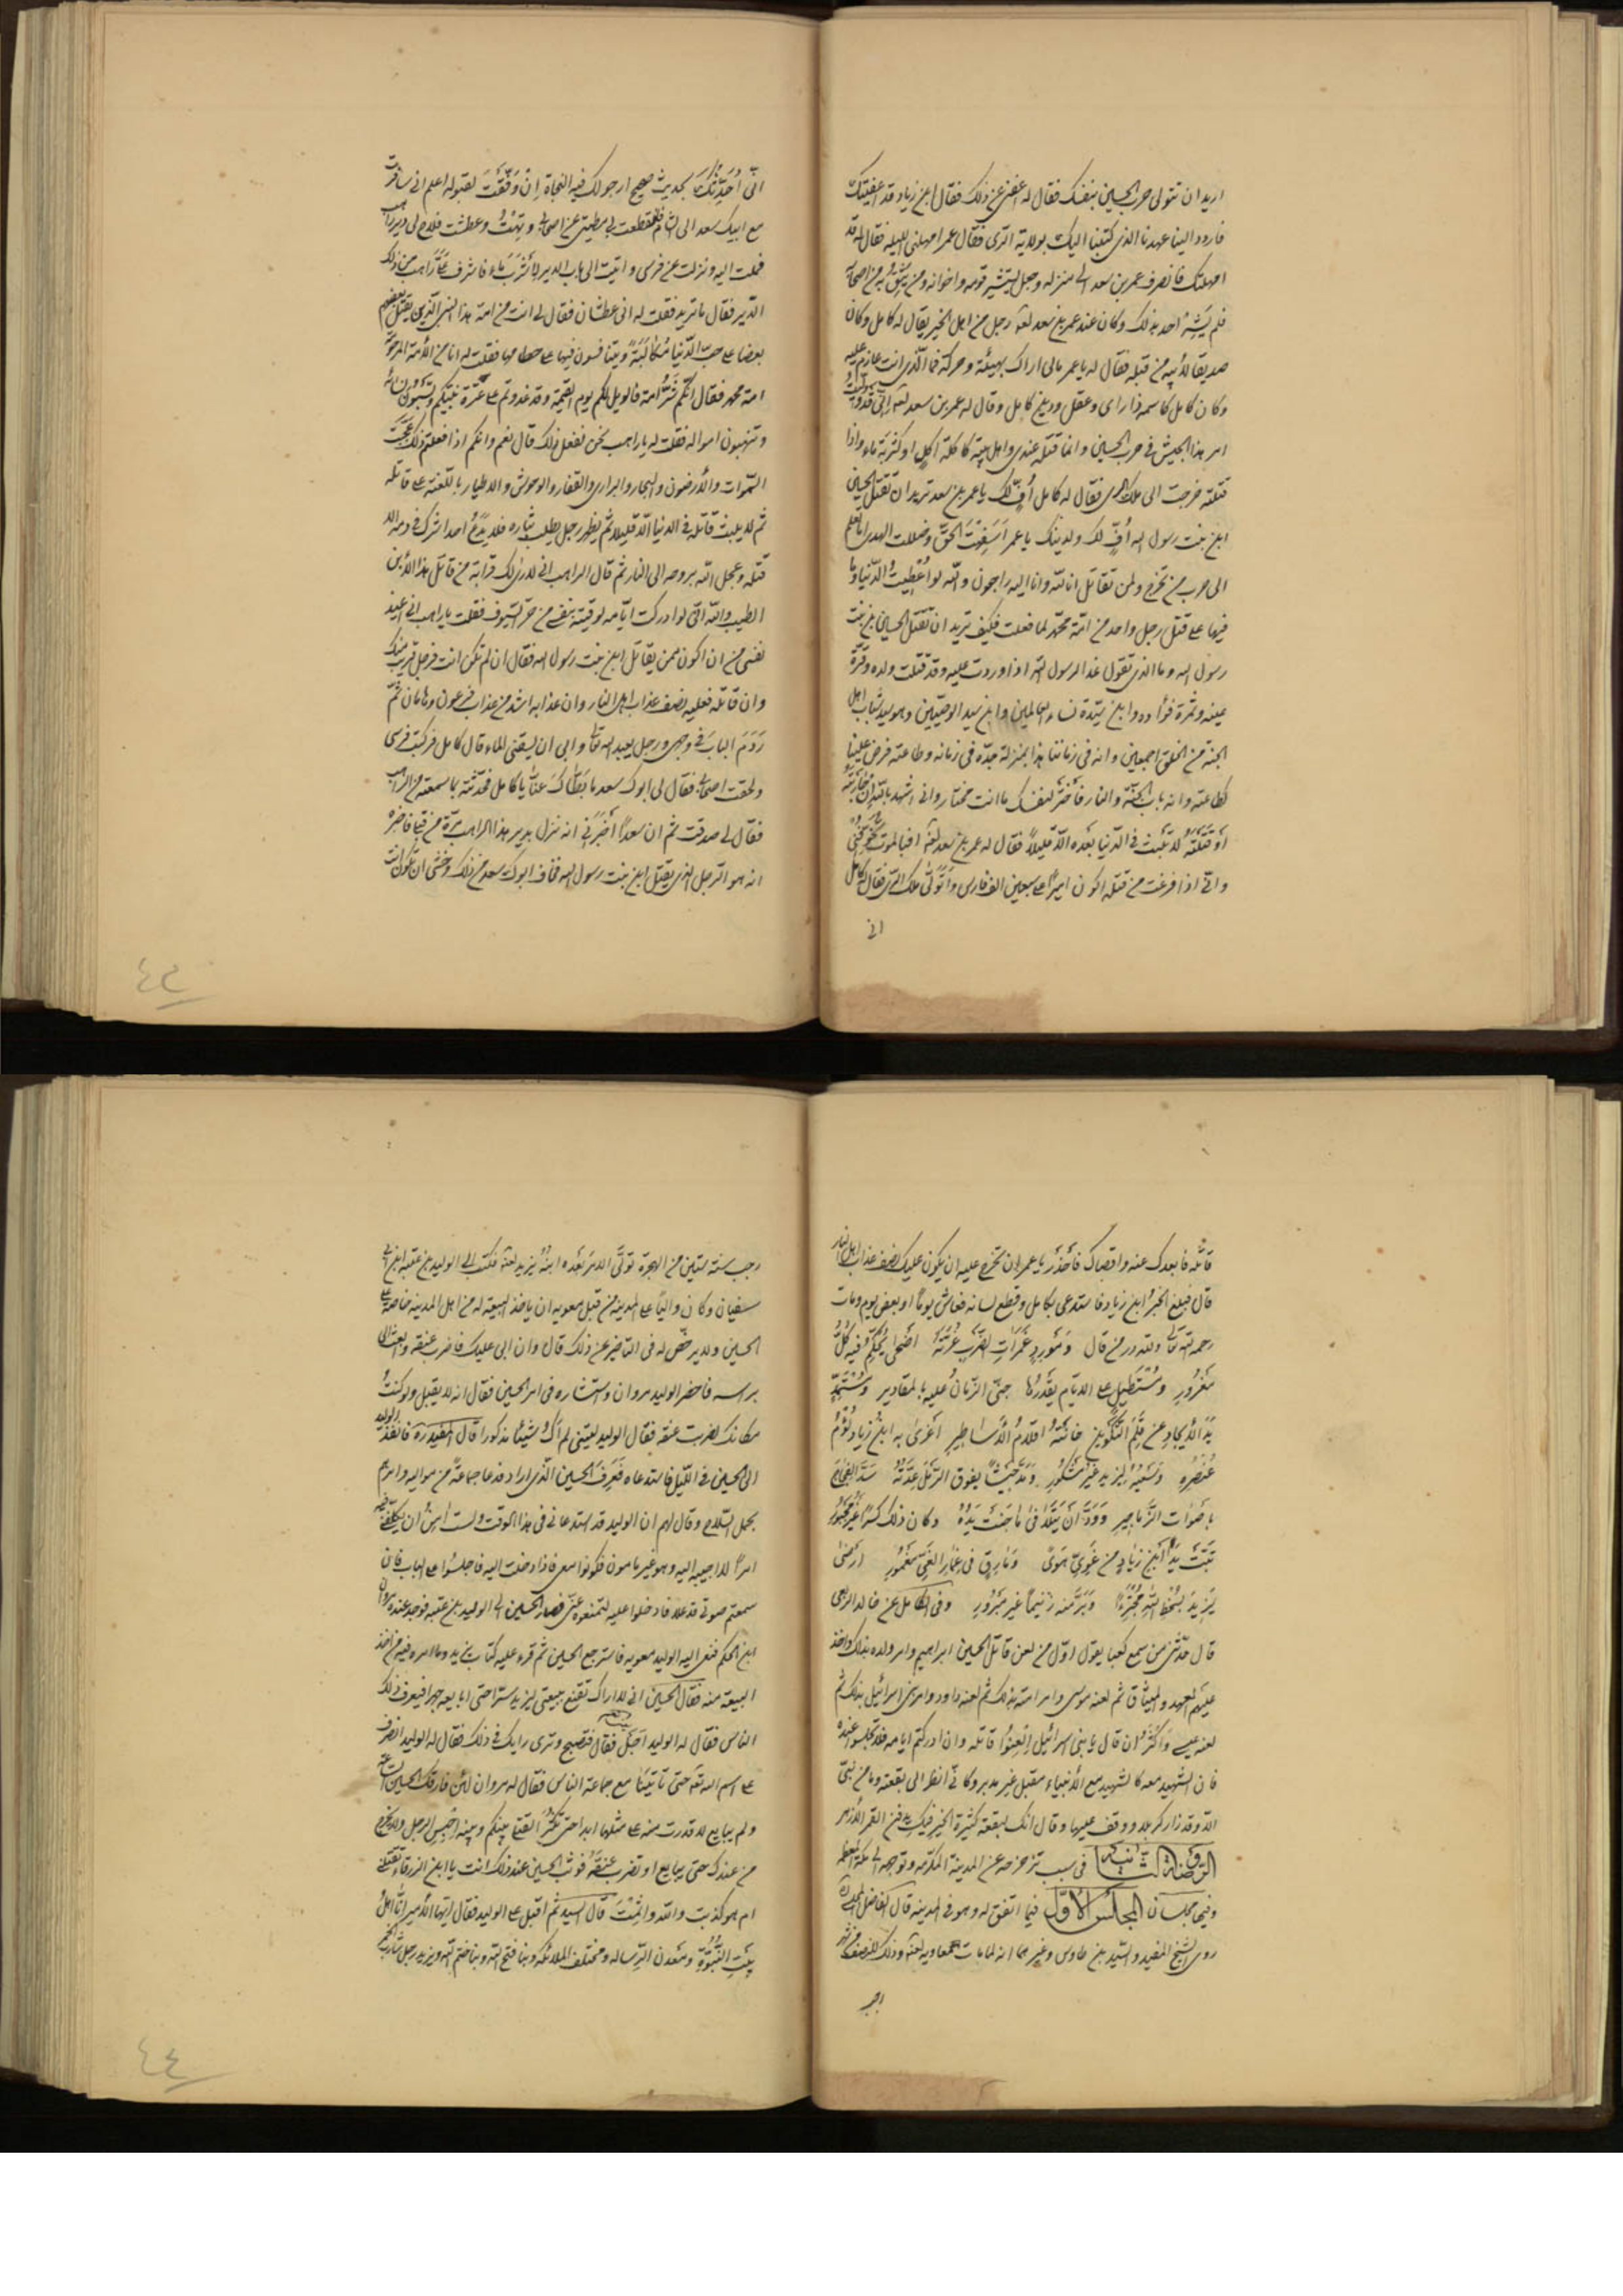 اريد ان تتولى حرب الحسين بنفسك فقال له اعفني عن ذلك فقال ابن زياد قد اعفيتك
فاردد الينا عهدنا الذي كتبنا اليك بولاية الري فقال عمر امهلني الليله فقال له قد
امهلتك فانصرف عمر بن سعد الى منزله وجعل يستشير قومه واخوانه ومن يثق به من اصحابه
فلم يشر احد بذلك وكان عند عمر بن سعد لعنه رجل من اهل الخير يقال له كامل وكان
صديقا لأبيه من قبله فقال له يا عمر مالى اراك بهيئة وحركة فما الذي انت عازم عليه
وكان كامل كاسمه ذا راى وعقل ودين كامل وقال له عمر بن سعد لعنه انى قد وليت
امر هذا الجيش في حرب الحسين وانما قتله عندي واهل بيته كاكلة اكل او كشربة ماء واذا
قتلته خرجت الى ملك الري فقال له كامل أفّ لك يا عمر بن سعد تريد ان تقتل الحسين
ابن بنت رسول الله أفّ لك ولدينك يا عمر أسفهت الحق وضللت الهدى اما تعلم
الى حرب من تخرج ولمن تقاتل انا لله وانا اليه راجعون والله لو اعطيت الدنيا وما
فيها على قتل رجل واحد من امة محمد لما فعلت فكيف تريد ان تقتل الحسين ابن بنت
رسول الله وما الذي تقول غدا لرسول الله اذا وردت عليه وقد قتلت ولده وقرة
عينه وثمرة فؤاده وابن سيدة نساء العالمين وابن سيد الوصيين وهو سيد شباب اهل
الجنة من الخلق اجمعين وانه في زماننا هذا بمنزلة جده في زمانه وطاعته فرض علينا
كطاعته وانه باب الجنة والنار فاختر لنفسك ما انت مختار واني اشهد بالله ان حاربته
او قتلته لا تلبث في الدنيا بعده الا قليلاً فقال له عمر بن سعد لعنه افبالموت تخوفني
واني اذا فرغت من قتله اكون اميرا على سبعين الف فارس واتولى ملك الري فقال كامل
اني
انّى احدثك بحديث صحيح ارجو لك فيه النجاة ان وفقت لقبوله اعلم اني سافرت
مع ابيك سعد الى الشام فانقطعت بي مطيتي عن اصحابي وتهت وعطشت فلاح لى دير راهب
فملت اليه ونزلت عن فرسي واتيت الى باب الدير لأشرب ماء فاشرف عليّ راهب من ذلك
الدير فقال ما تريد فقلت له اني عطشان فقال لي انت من امة هذا النبي الذين يقتل بعضهم
بعضا على حب الدنيا مكالبة ويتنافسون فيها على حطامها فقلت له انا من الأمة المرحومة
امة محمد فقال انكم شر امة فالويل لكم يوم القيمة وقد غدوتم على عترة نبيكم وتسبون نسائه
وتنهبون امواله فقلت له يا راهب نحن نفعل ذلك قال نعم وانكم اذا فعلتم ذلك عجت
السموات والأرضون والبحار والبراري والقفار والوحوش والاطيار باللعنة على قاتله
ثم لا يلبث قاتله في الدنيا الا قليلا ثم يظهر رجل يطلب بثاره فلا يدع احدا شرك في دمه الا
قتله وعجل الله بروحه الى النار ثم قال الراهب اني لا رى لك قرابة من قاتل هذا الأبن
الطيب والله اني لو ادركت ايامه لوقيته بنفسي من حر السيوف فقلت يا راهب اني اعيذ
نفسي من ان اكون ممن يقاتل ابن بنت رسول الله فقال ان لم تكن انت فرجل قريب منك
وان قاتله فعليه نصف عذاب اهل النار وان عذابه اشد من عذاب فرعون وهامان ثم
ردم الباب في وجهي ودخل يعبد الله تعالى وابى ان يسقيني الماء قال كامل فركبت فرسي
ولحقت اصحابي فقال لى ابوك سعد ما بطأك عنا يا كامل فحدثته بما سمعته من الراهب
فقال لي صدقت ثم ان سعدا اخبرني انه نزل بدير هذا الراهب مرة من قبل فاخبره
انه هو الرجل الذي يقتل ابن بنت رسول الله فخاف ابوك سعد من ذلك وخشى ان تكون انت
٤٣
قاتله فابعدك عنه واقصاك فاحذر يا عمر ان تخرج عليه ان يكون عليك نصف عذاب اهل النار
قال فبلغ الخبر ابن زياد فاستدعى بكامل وقطع لسانه فعاش يوما او بعض يوم ومات
رحمه الله تعالى ولله در من قال ومورد غمرات الضرب غرته اضحى يحكم فيه كل
مغرور ومستطيل على الايام يقدرها جنى الزمان عليه بالمقادير
اغرى به ابن زياد لؤم
عنصره وسعيه ليزيد غير مشكور
وود ان يتلافى ما جنت يده وكان ذلك كسرا غير مجبور
تبت يدا ابن زياد من غوي هوى ومارق في غمار الغي مغمور ارضى
يزيد بسخط الله مجترءا وبر منه زنيما غير مبرور وفي الكامل عن خالد الربعي
قال حدثني من سمع كعبا يقول اول من لعن قاتل الحسين ابراهيم وامر ولده بذلك واخذ
عليهم العهد والميثاق ثم لعنه موسى وامر امته بذلك ثم لعنه داود وامر بنى اسرائيل بذلك ثم
لعنه عيسى واكثر ان قال يا بني اسرائيل العنوا قاتله وان ادركتم ايامه فلا تجلسوا عنده
فان الشهيد معه كالشهيد مع الأنبياء مقبل غير مدبر وكاني انظر الى بقعته وما من نبي
الا وقد زار كربلا ووقف عليها وقال انك لبقعة كثيرة الخير فيك يدفن القمر الأزهر
الروضة الثانية في سبب تزحزحه عن المدينة المكرمة وتوجهه الى مكة المعظمة
وفيها مجلسان المجلس الأول فيما اتفق له وهو في المدينة قال الفاضل
روى الشيخ المفيد والسيد بن طاوس وغيرهما انه لما مات معاويه لعنه وذلك للنصف من شهر
رجب
رجب سنة ستين من الهجرة تولى الامر بعده ابنه يزيد لعنه فكتب الى الوليد بن عتبه ابن ابي
سفيان وكان واليا على المدينه من قبل معويه ان ياخذ البيعة له من اهل المدينه خاصة على
الحسين ولا يرخص له في التاخير عن ذلك قال وان ابى عليك فاضرب عنقه وابعث الى
براسه فاحضر الوليد مروان واستشاره في امر الحسين فقال انه لا يقبل ولو كنت
مكانك لضربت عنقه فقال الوليد ليتني لم اك شيئا مذكورا قال المفيد ره فانفذ الوليد
الى الحسين في الليل فاستدعاه فعرف الحسين الذي اراد فدعا جماعة من مواليه وامرهم
بحمل السلاح وقال لهم ان الوليد قد استدعاني في هذا الوقت ولست امن ان يكلفني فيه
امرا لا اجيبه اليه وهو غير مامون فكونوا معي فاذا دخلت اليه فاجلسوا على الباب فان
سمعتم صوتي قد علا فادخلوا عليه لتمنعوه عني فصار الحسين الى الوليد بن عتبه فوجد عنده مروان
ابن الحكم فنعى اليه الوليد معويه فاسترجع الحسين ثم قرء عليه كتاب يزيد وما امره فيه من اخذ
البيعة منه فقال الحسين اني لا اراك تقنع ببيعتي ليزيد سرا حتى ابايعه جهرا فيعرف ذلك
الناس فقال له الوليد اجل فقال فتصبح وترى رايك في ذلك فقال له الوليد انصرف
على اسم الله تعه حتى تاتينا مع جماعة الناس فقال له مروان لئن فارقك الحسين الساعة
ولم يبايع لا قدرت منه على مثلها ابدا حتى تكثر القتلى بينكم وبينه احبس الرجل ولا يخرج
من عندك حتى يبايع او تضرب عنقه فوثب الحسين عند ذلك انت يا ابن الزرقاء تقتلني
ام هو كذبت والله واثمت قال السيد ثم اقبل على الوليد فقال ايها الأمير انا اهل
بيت النبوة ومعدن الرساله ومختلف الملائكه وبنا فتح الله وبنا ختم الله ويزيد رجل شارب الخمر
٤٤